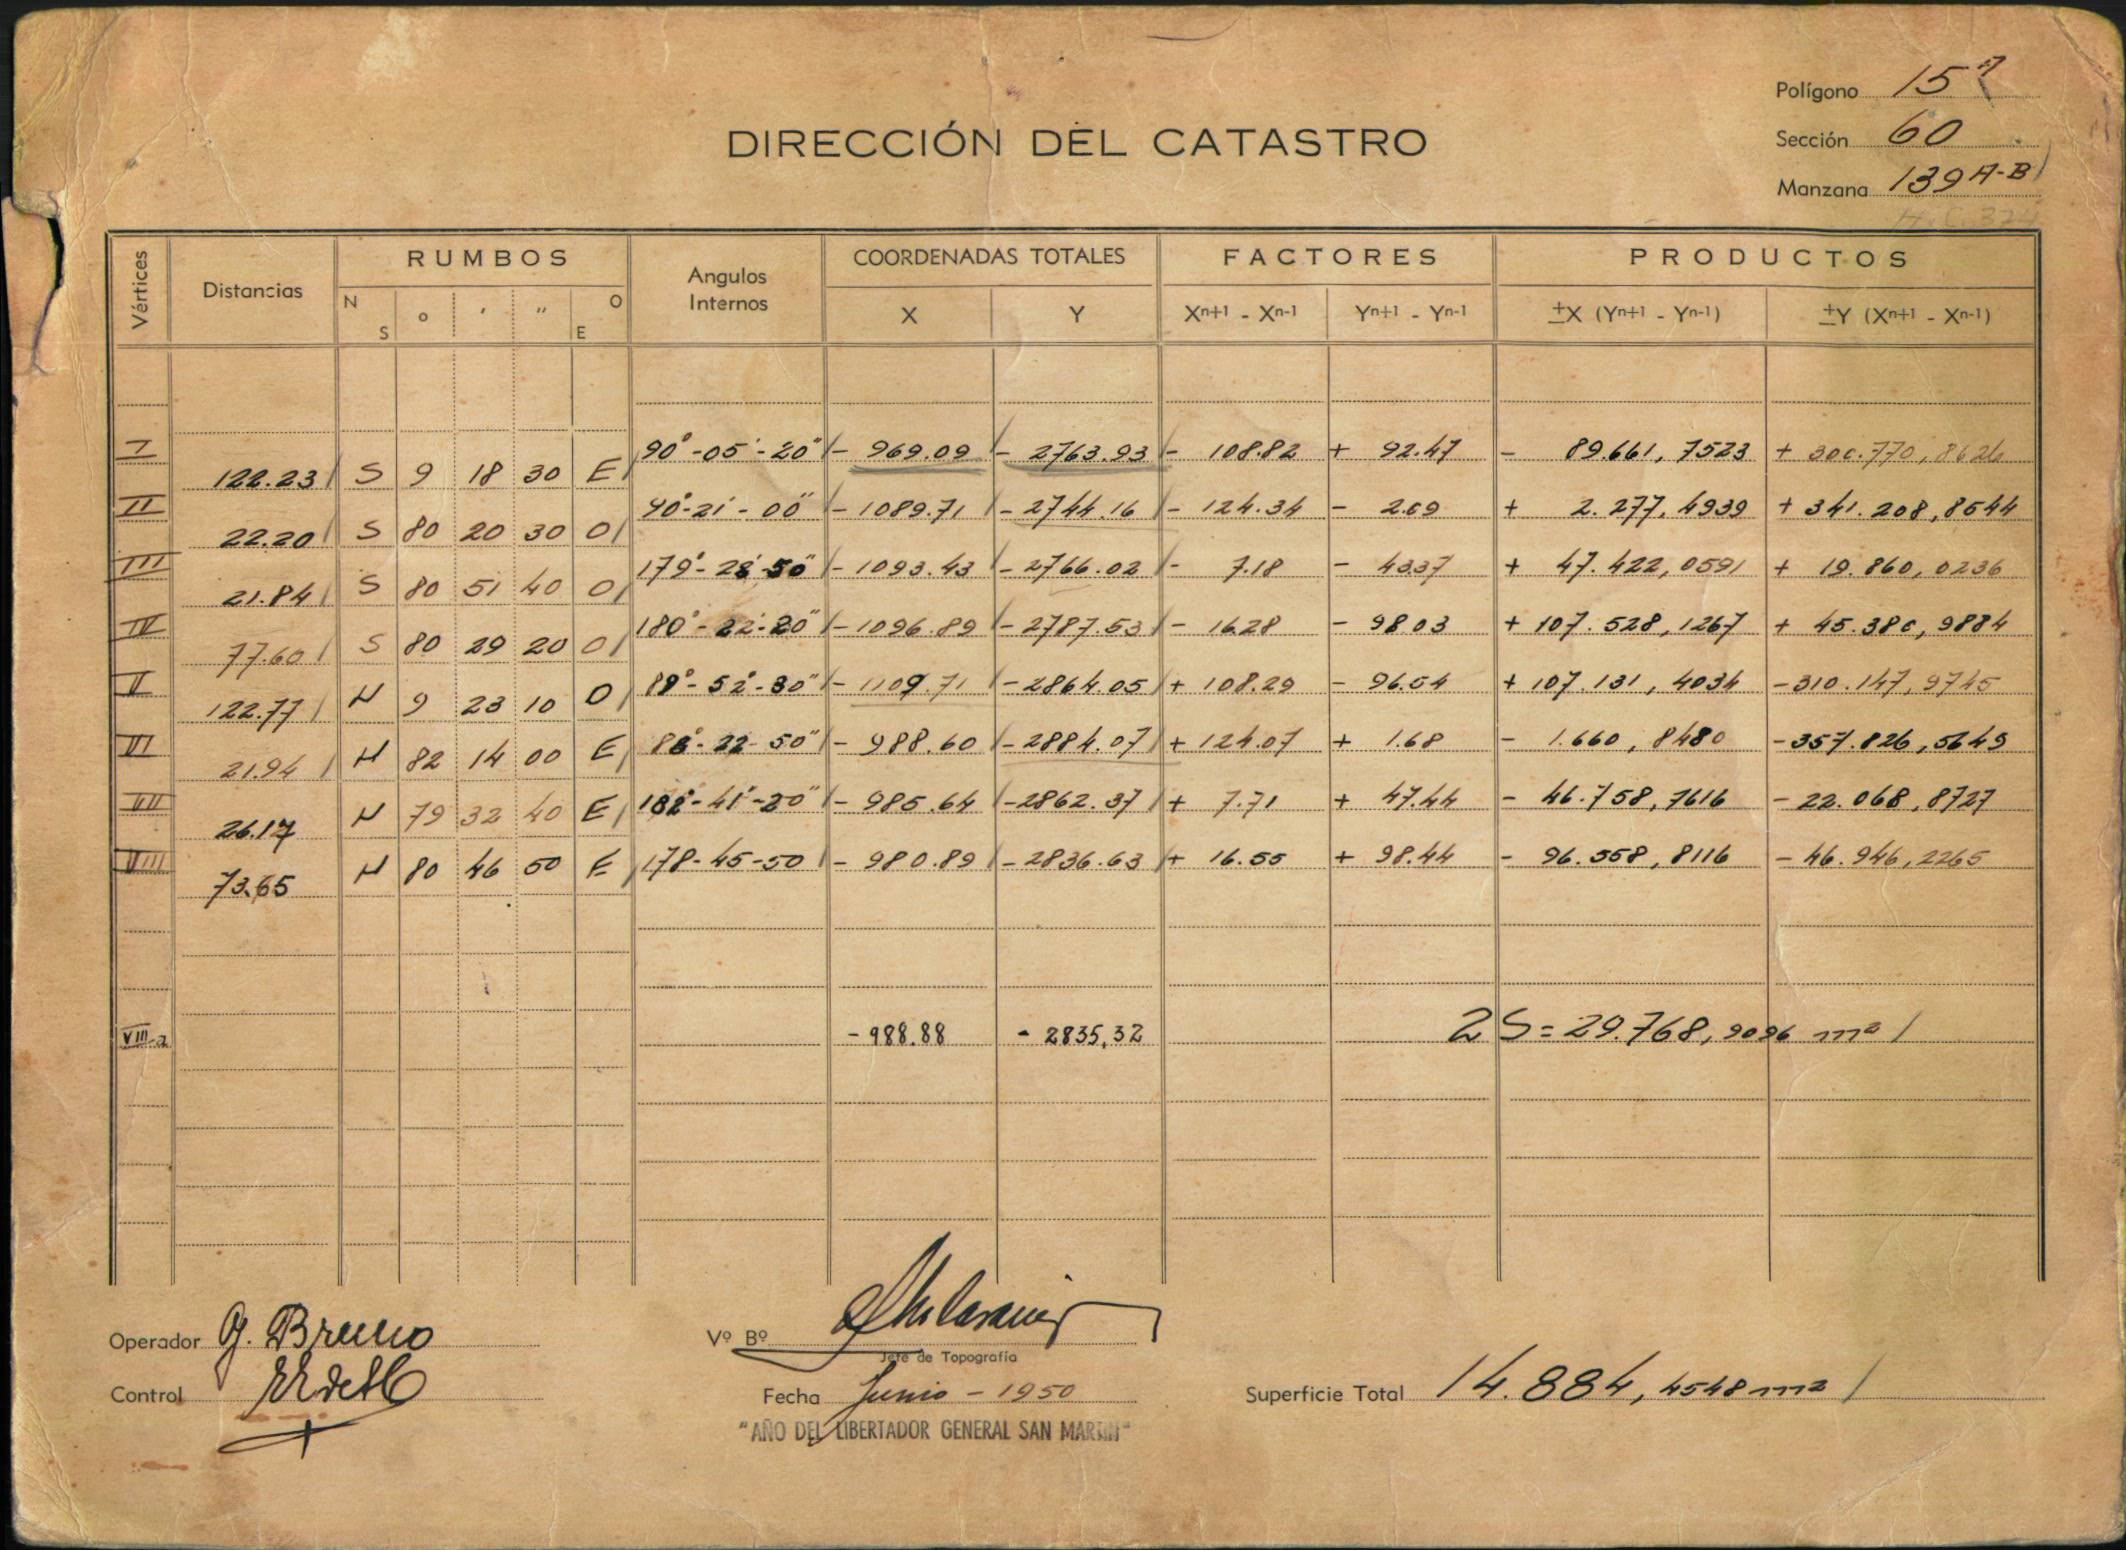 Polígono 15ª
DIRECCIÓN DEL CATASTRO
Sección 60
Manzana 139 A-B
H.C. 324
Vértices Distancias RUMBOS Angulos Internos COORDENADAS TOTALES FACTORES PRODUCTOS
N S o ' " O E X Y Xn+1 - Xn-1 Yn+1 - Yn-1 ±X (Yn+1 - Yn-1) ±Y (Xn+1 - Xn-1)
I 90°-05'-20" - 969.09 - 2763.93 - 108.82 + 92.47 - 89.661,7523 + 300.770,8626
122.23 S 9 18 30 E
II 90°-21'-00" - 1089.71 - 2744.16 - 124.34 - 2.09 + 2.277,4939 + 341.208,8544
22.20 S 80 20 30 O
III 179°-28'-50" - 1093.43 - 2766.02 - 7.18 - 43.37 + 47.422,0591 + 19.860,0236
21.84 S 80 51 40 O
IV 180°-22'-20" - 1096.89 - 2787.53 - 16.28 - 98.03 + 107.528,1267 + 45.380,9884
77.60 S 80 29 20 O
V 89°-52'-30" - 1109.71 - 2864.05 + 108.29 - 96.54 + 107.131,4034 - 310.147,9745
122.77 N 9 23 10 O
VI 88°-22'-50" - 988.60 - 2884.07 + 124.07 + 1.68 - 1.660,8480 - 357.826,5649
21.94 N 82 14 00 E
VII 182°-41'-20" - 985.64 - 2862.37 + 7.71 + 47.44 - 46.758,7616 - 22.068,8727
26.17 N 79 32 40 E
VIII 178-45-50 - 980.89 - 2836.63 + 16.55 + 98.44 - 96.558,8116 - 46.946,2265
73.65 N 80 46 50 E
VIII-a - 988.88 - 2835,32 2S = 29.768,9096 m²
Operador G. Bruno
Vº Bº
Jefe de Topografía
Control
Fecha Junio - 1950
Superficie Total 14.884,4548 m²
"AÑO DEL LIBERTADOR GENERAL SAN MARTIN"